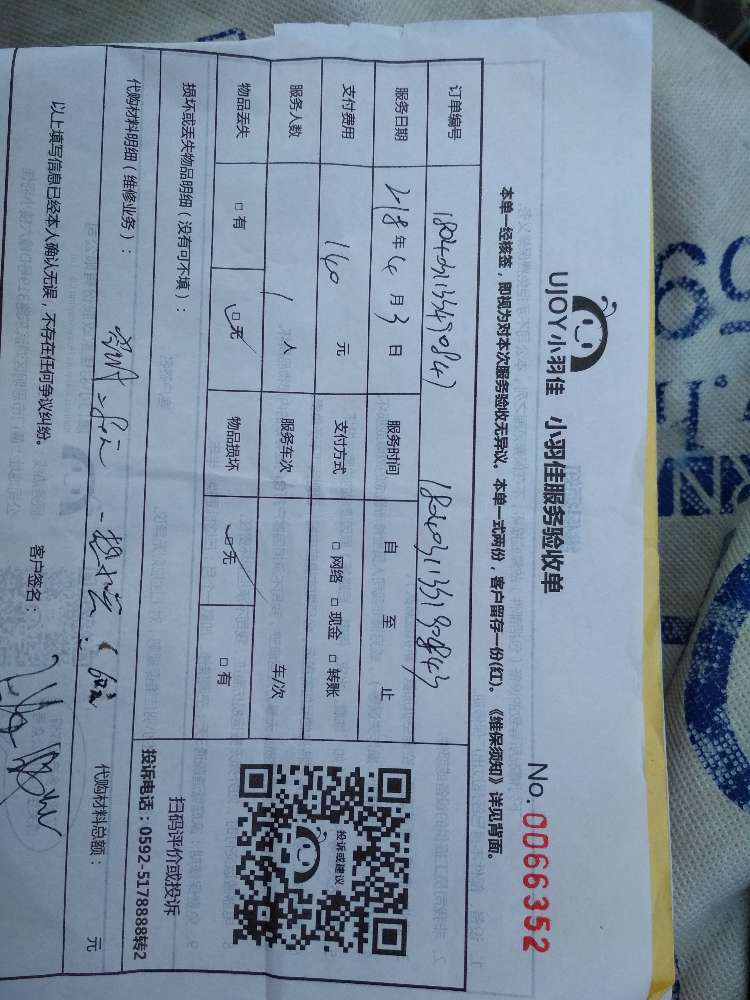 UJOY小羽佳 小羽佳服务验收单
No. 0066352
本单一经核签，即视为对本次服务验收无异议。本单一式两份，客户留存一份(红)。《维保须知》详见背面。
订单编号
服务日期 年 4 月 3 日 服务时间 自 至 止
支付费用 140 元 支付方式 □ 网络 □ 现金 □ 转账
服务人数 1 人 服务车次 车/次
物品丢失 □ 有 □ 无 物品损坏 □ 无 □ 有
损坏或丢失物品明细（没有可不填）：
投诉或建议
扫码评价或投诉
投诉电话：0592-5178888转2
代购材料明细（维修业务）：
代购材料总额： 元
以上填写信息已经本人确认无误，不存在任何争议纠纷。
客户签名：